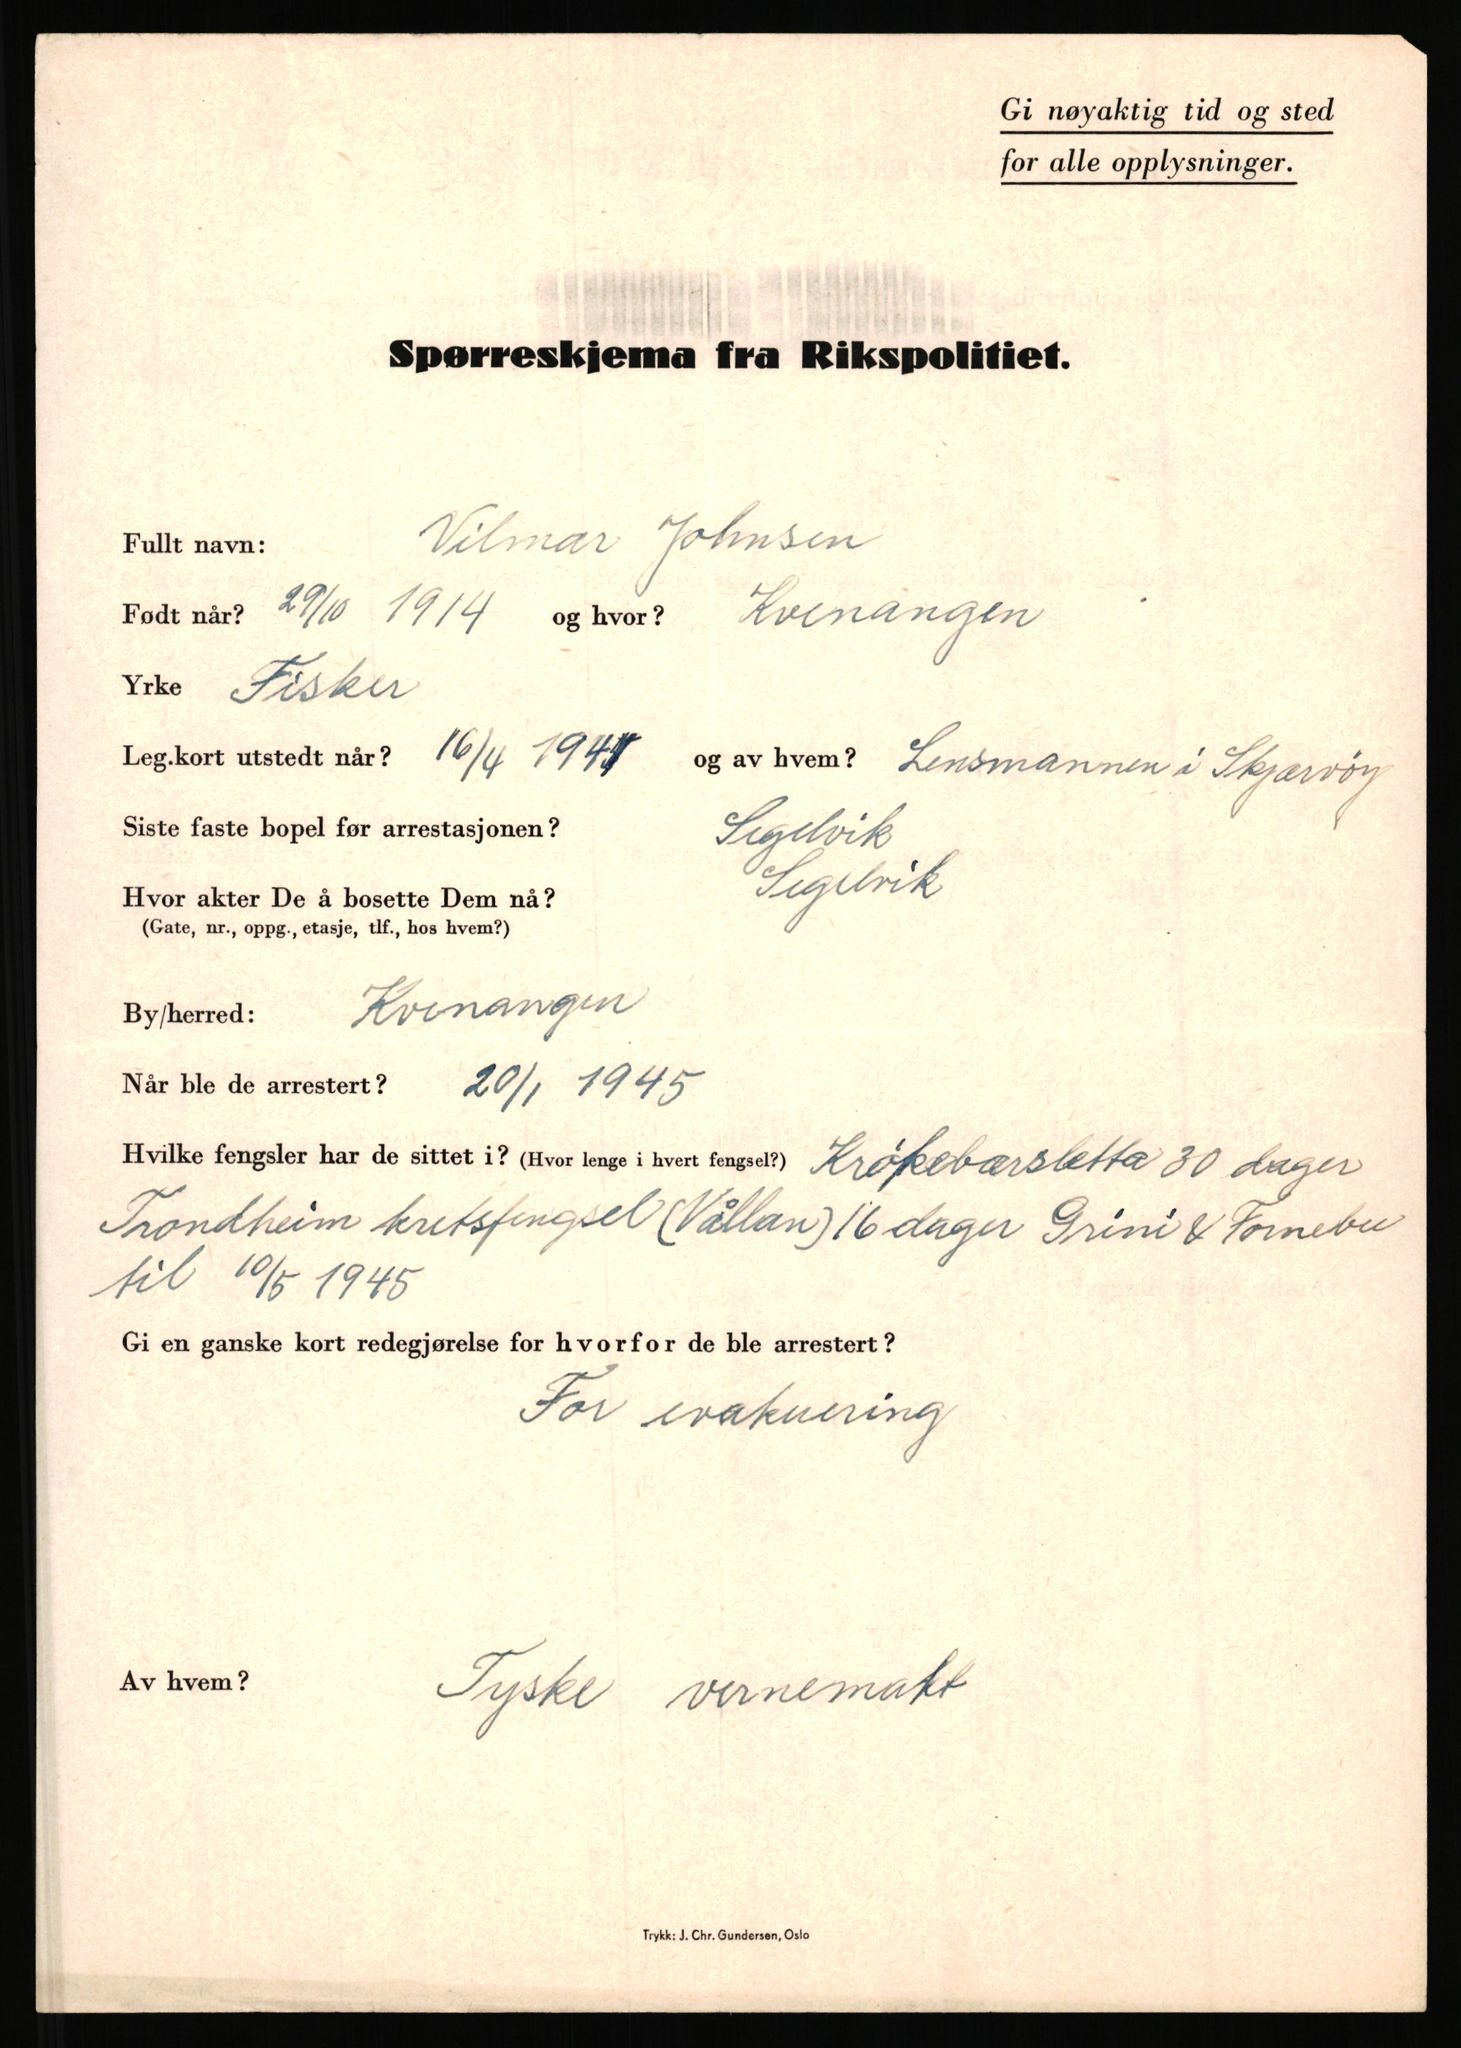 Gi nøyaktig tid og sted
for alle opplysninger.
Spørreskjema fra Rikspolitiet.
Fullt navn: Vilmar Johnsen
Født når? 29/10 1914 og hvor? Kvenangen
Yrke Fisker
Leg.kort utstedt når? 16/4 1941 og av hvem? Lensmannen i Skjærvöy
Siste faste bopel før arrestasjonen? Segelvik
Hvor akter De å bosette Dem nå? Segelvik
(Gate, nr., oppg., etasje, tlf., hos hvem?)
By/herred: Kvenangen
Når ble de arrestert? 20/1 1945
Hvilke fengsler har de sittet i? (Hvor lenge i hvert fengsel?) Krökebærsletta 30 dager
Trondheim kretsfengsel (Vållan) 16 dager Grini & Fornebu
til 10/5 1945
Gi en ganske kort redegjørelse for hvorfor de ble arrestert?
For evakuering
Av hvem? Tyske vernemakt
Trykk: J. Chr. Gundersen, Oslo